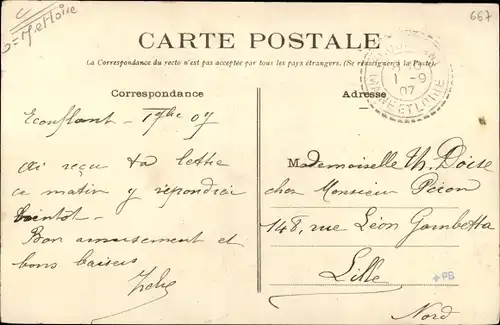 C
= M et Loire
667
CARTE POSTALE
La Correspondance du recto n'est pas acceptée par tous les pays étrangers. (Se renseigner à la Poste).
1 -9
07
MAINE ET LOIRE
Correspondance
Adresse
Ecouflant - 1 7bre 07
Ai reçu ta lettre
ce matin y repondrai
bientot.
Bon amusement et
bons baisers
Mademoiselle Th. Doise
chez Monsieur
148, rue Léon Gambetta
Lille
+PB
Nord